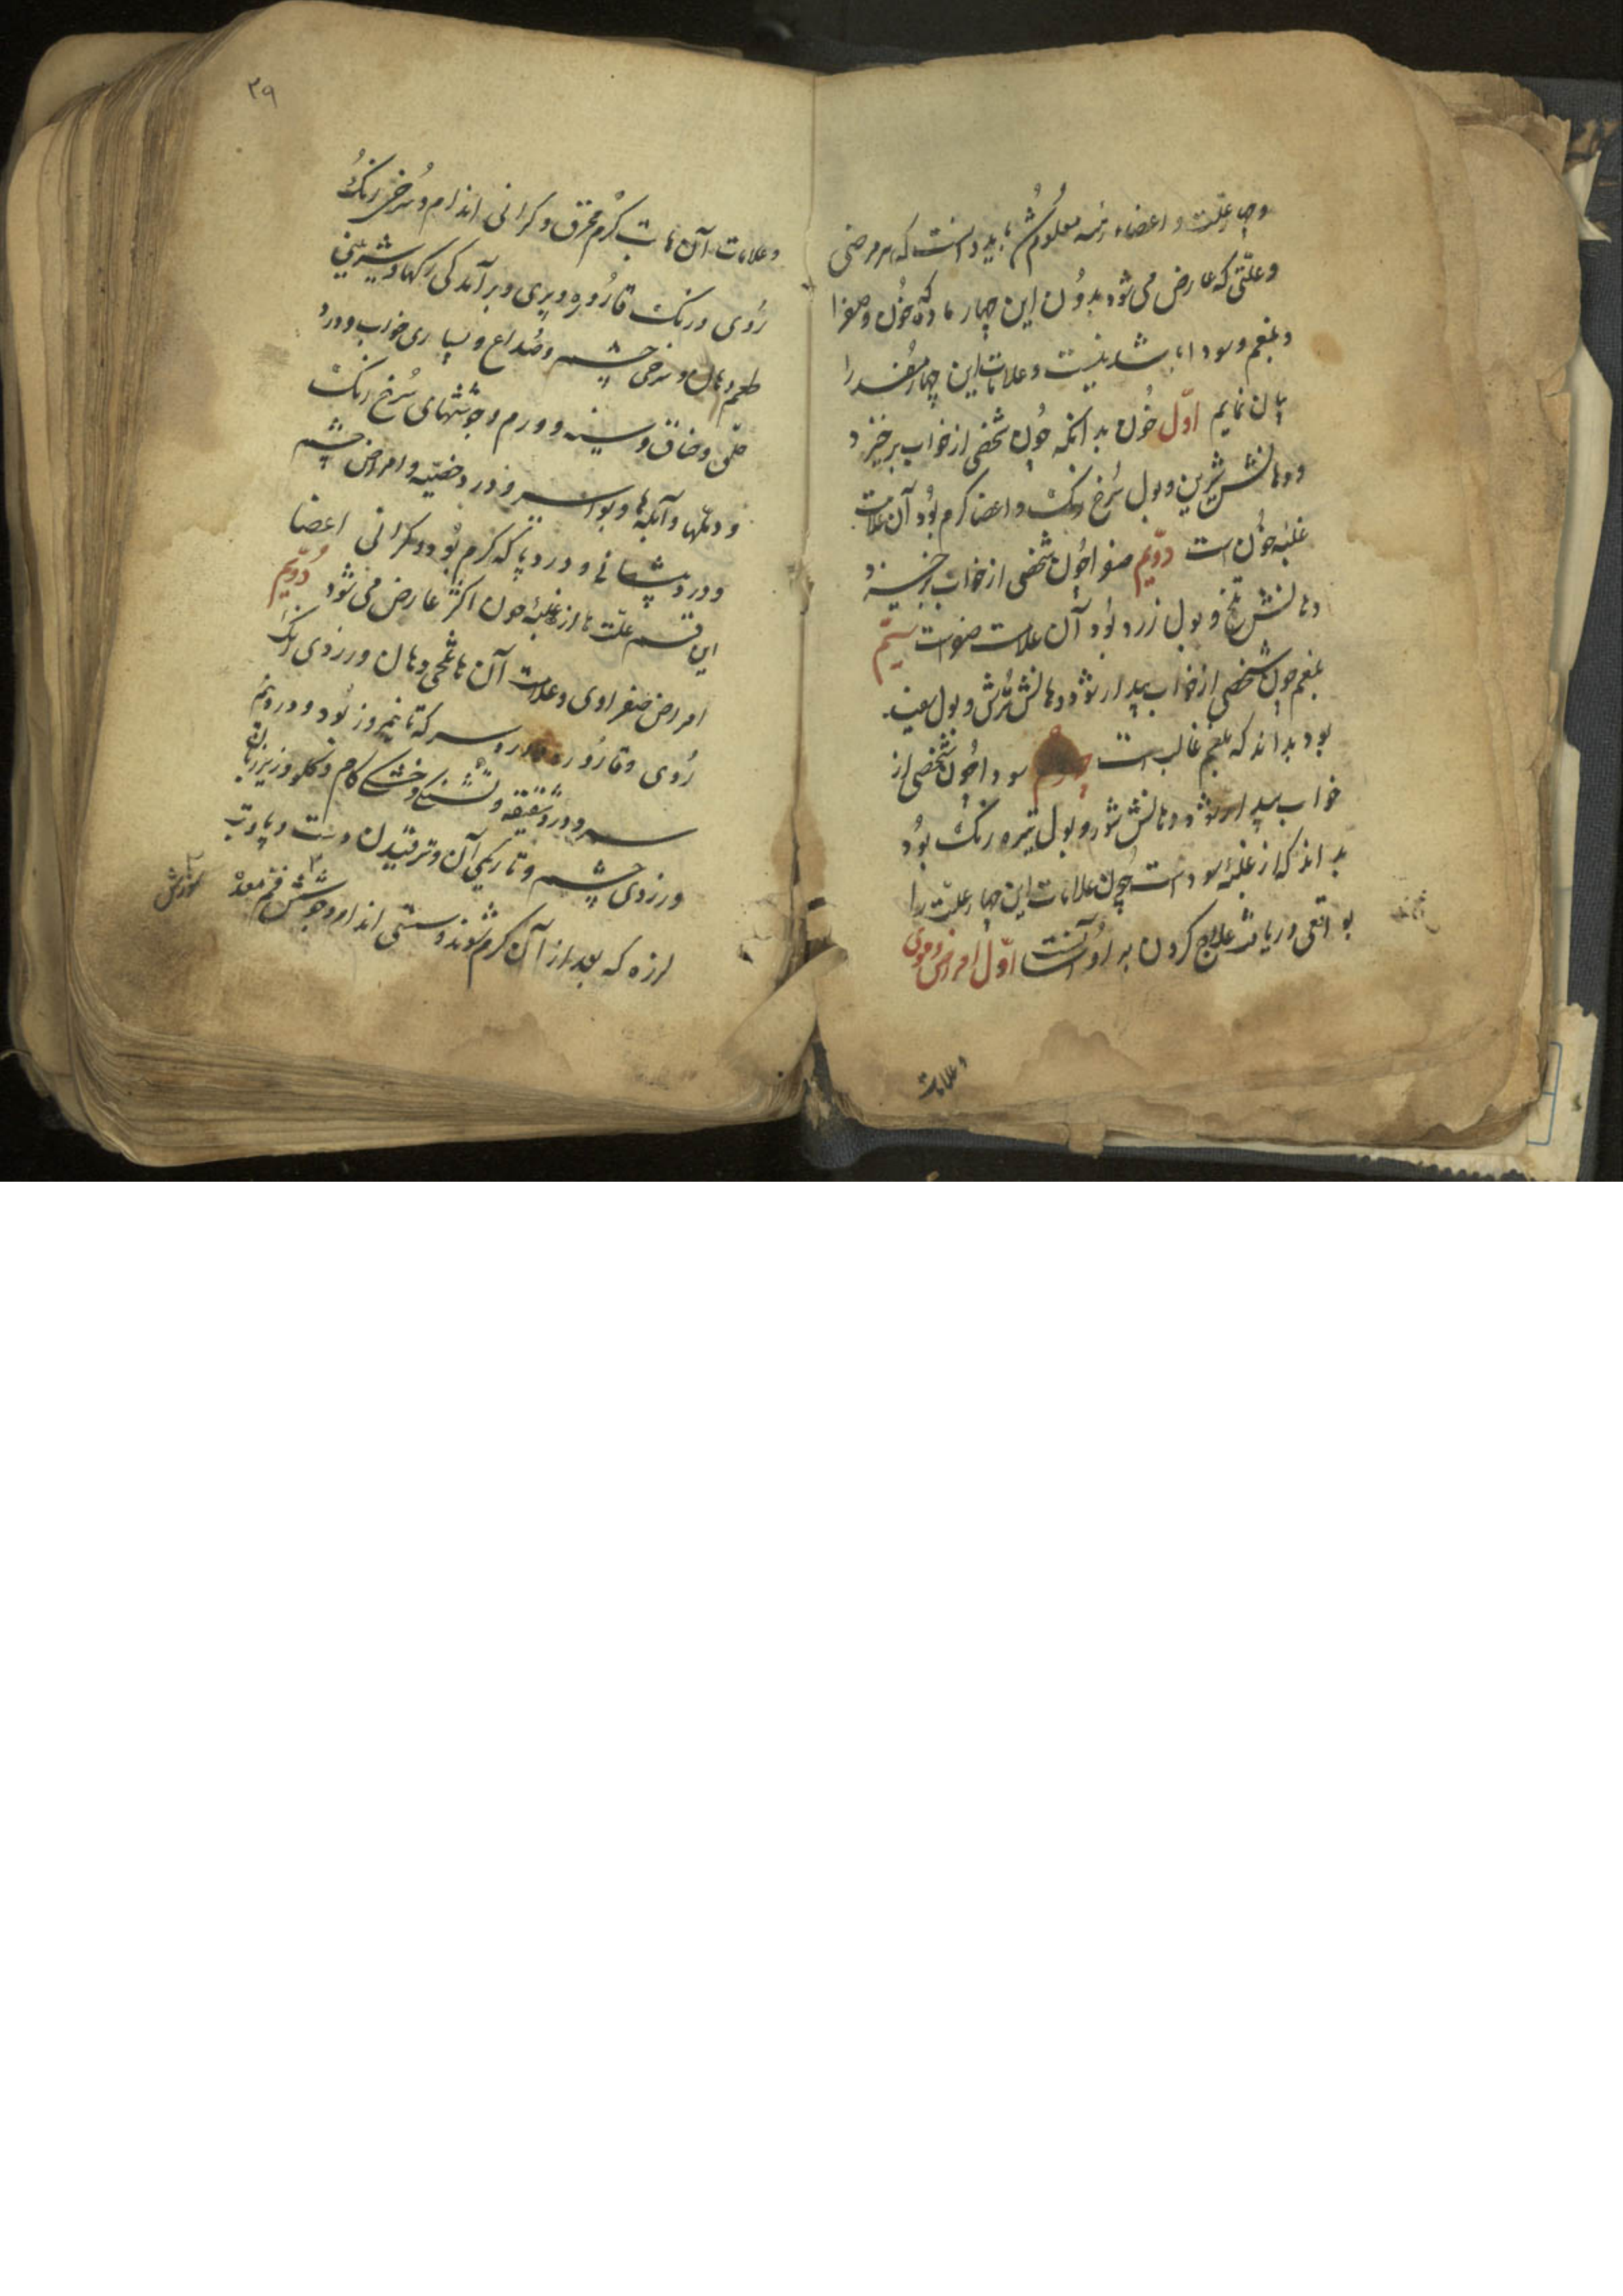 و علت و اعضاء رئیسه معلوم شد باید دانست که هر مرضی
و علتی که عارض می شود بدون این چهار ماده که خون و صفرا
و بلغم و سودا باشد نیست و علامات این چهار مفسد را
بیان نمایم اوّل خُون بدانکه چون شخصی از خواب برخیزد
و دهانش شیرین و بول سُرخ رنک و اعضا کرم بُود آن علامت
غلبهٔ خُون است دوّیم صفرا چُون شخصی از خواب برخیزد
دهانش تلخ و بول زرد بُود آن علامت صفراست سیّم
بلغم چون شخصی از خواب بیدار شود دهانش تُرش و بول سفید
بود بداند که بلغم غالب است چهارم سودا چُون شخصی از
خواب بیدار شود دهانش شور و بول تیره رنک بُود
بداند که از غلبهٔ سوداست چون علامات این چهار علّت را
بواقعی دریافت علاج کردن بر او آسانست اوّل امراض دموی
و علامات
۳۹
و علامات آن ها تب کرم محرق و کرانی اندام و سُرخی رنک
رُوی و رنک قارُوره و پری و برآمدکی رکها و شیرینی
طعم دهان و سرخی چشم و صُداع و بسیاری خواب و درد
حلق و خناق و سینه و ورم و جوششهای سُرخ رنک
و دملها و آبله ها و بواسیر و درد خصیه و امراض چشم
و درد پیشانی و درد پا که کرم بُود و کرانی اعضا
این قسم علّت ها از غلبهٔ خون اکثر عارض می شود دُوّیم
امراض صفراوی و علامت آن ها تلخی دهان و زردی رنک
رُوی و قارُوره و درد سر که تا نیمروز بُود و درد نیم
سر و درد شقیقه و تشنکی و خشکی کام و کلو و زیر زبان
و زردی چشم و تاریکی آن و ترقیدن دست و پا و تب
لرزه که بعد از آن کرم شوند و سستی اندام و جوشش فم معده
سوزش